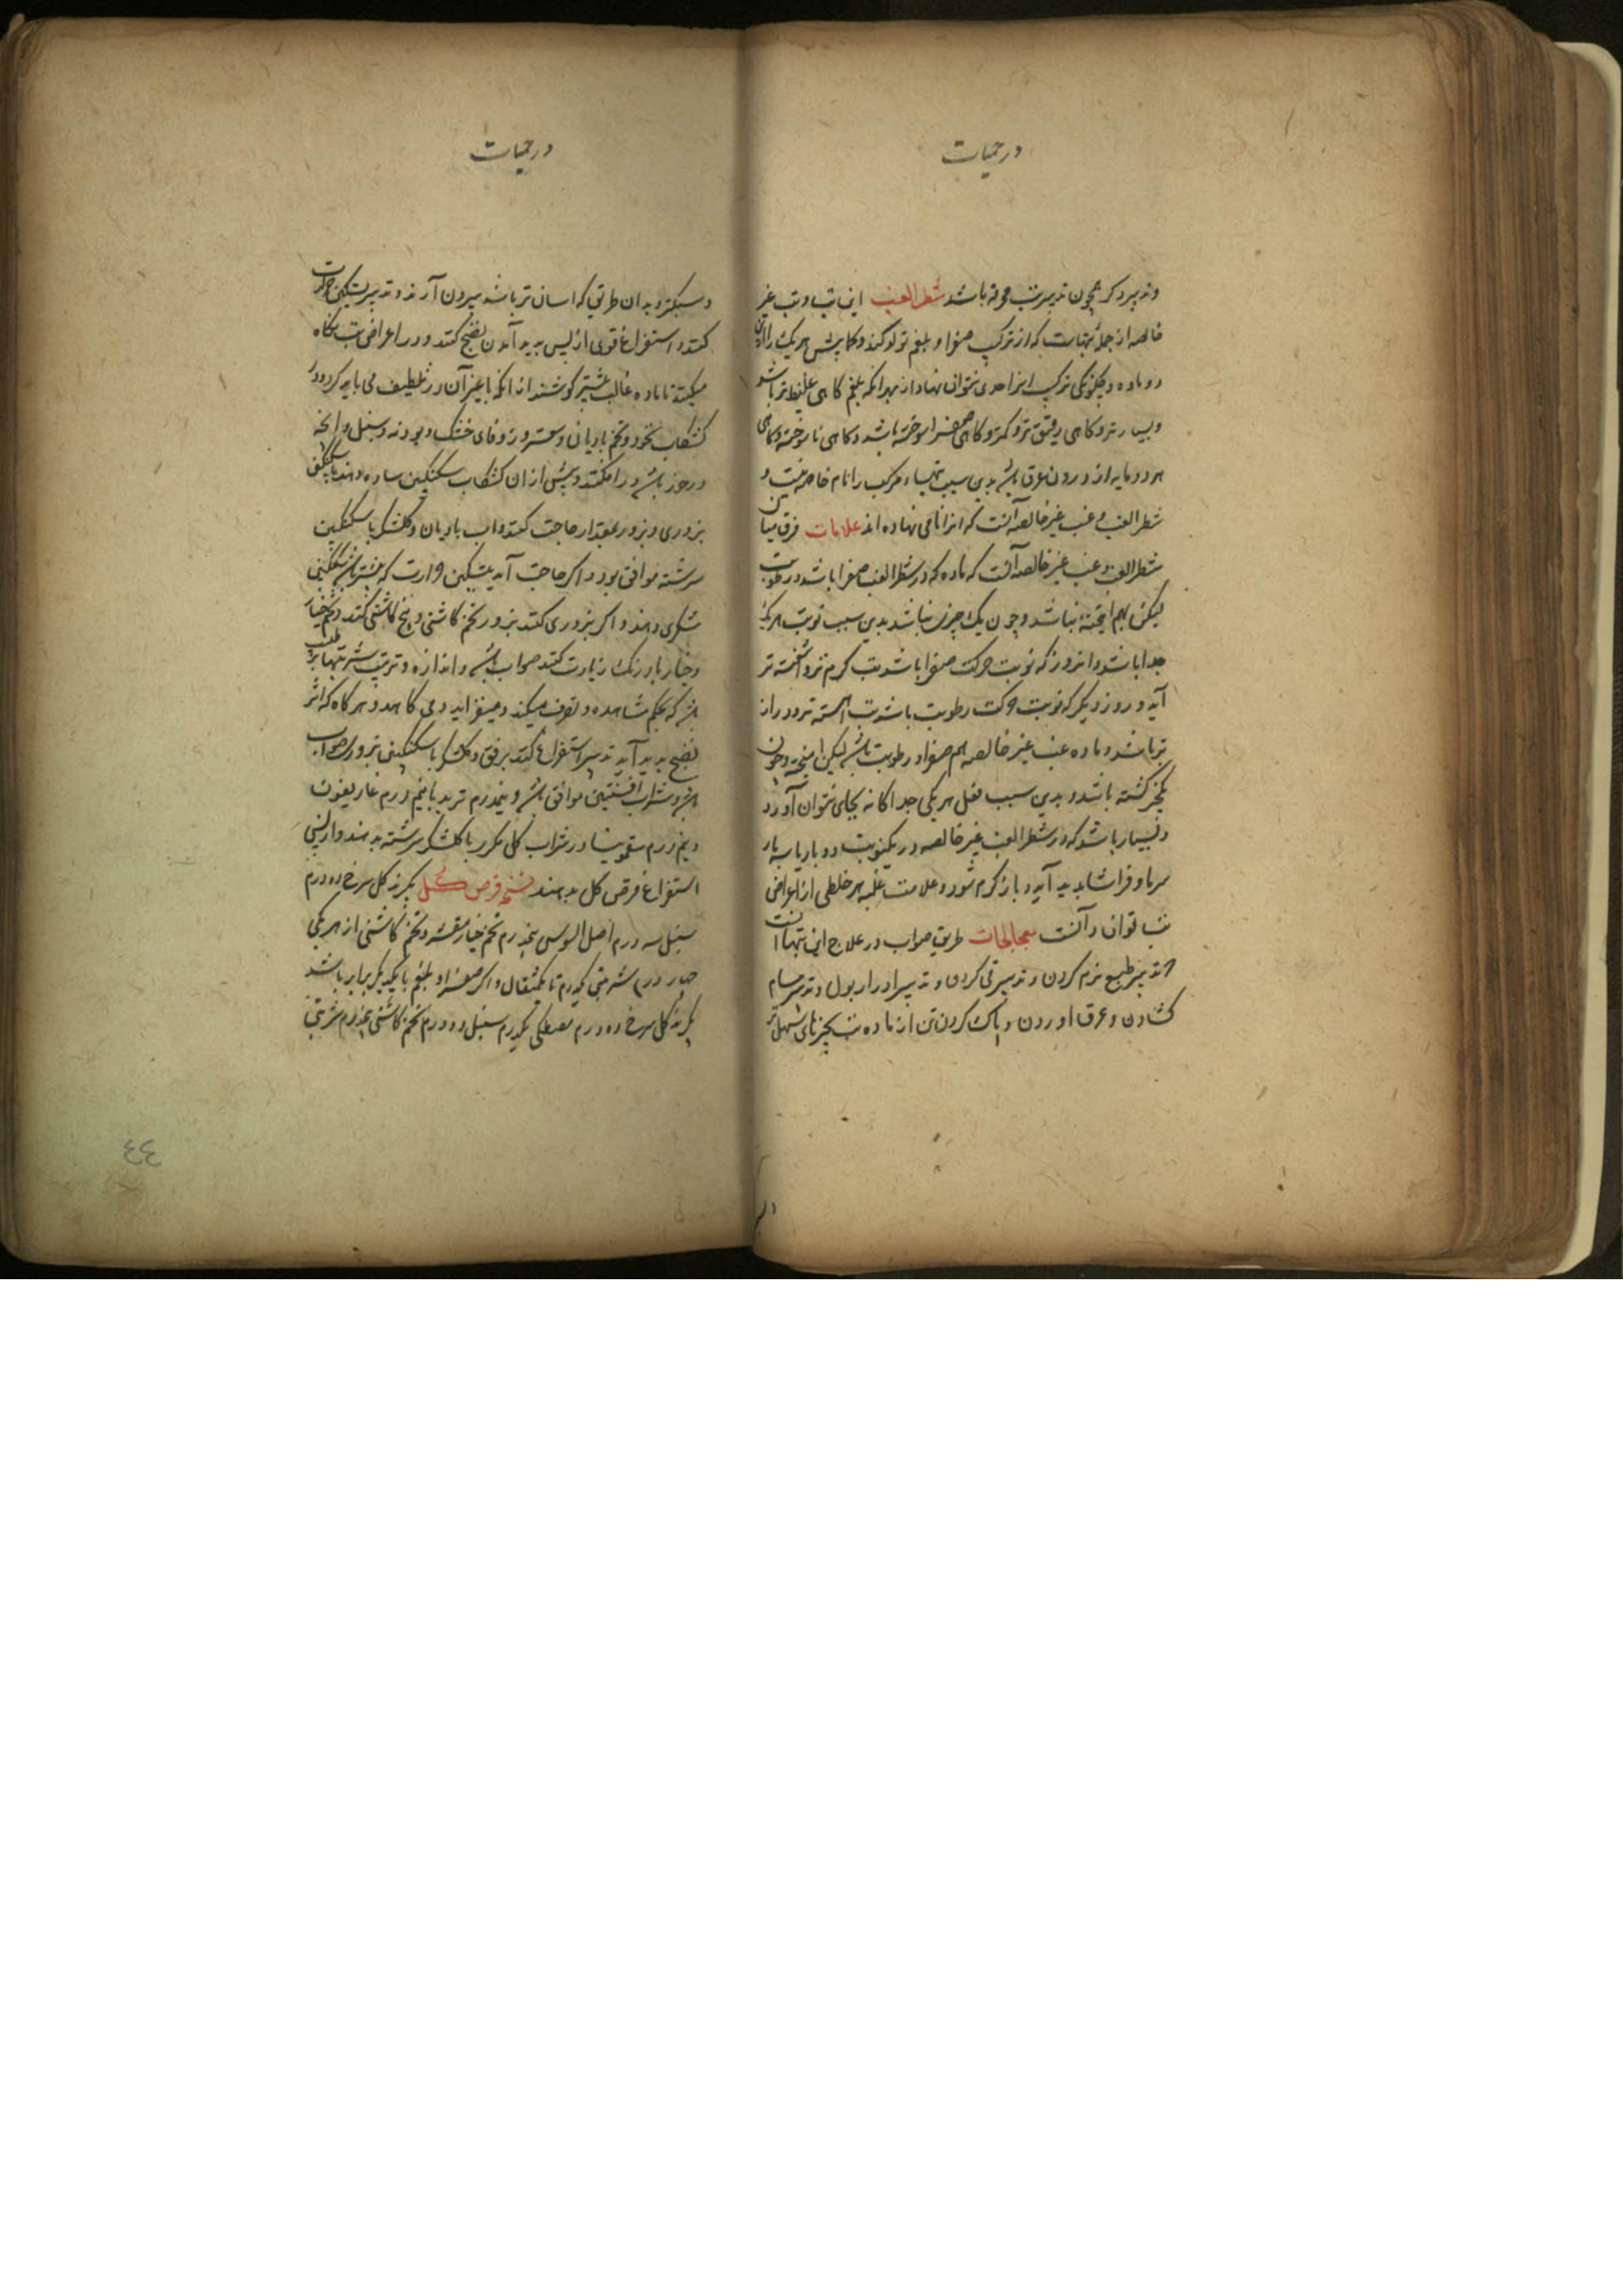 در حمیات
و تدبیر دیگر همچون تدبیر تب محرقه باشد شطر الغب این تب و تب غیر
خالصه از جمله تبهاست که از ترکیب صفرا و بلغم تولد کند و کما بیش هر یک را ازین
دو ماده و چگونگی ترکیب انرا حدی نتوان نهاد از بهر انکه بلغم کاهی غلیظ تر باشد
و بسیار تر و کاهی رقیق تر و کمتر و کاهی صفرا سوخته باشد و کاهی ناسوخته و کاهی
هر دو مایه از درون عروق باشد بدین سبب تبهاء مرکب را نام خاصه نیست و
شطر الغب و غب غیر خالصه آنست که انرا نامی نهاده اند علامات فرق میان
شطر الغب و غب غیر خالصه آنست که ماده که در شطر الغب صفرا باشد و رطوبت
لیکن بهم امیخته نباشد و چون یک چیز نباشد بدین سبب نوبت هر یک
جدا باشد و انروز که نوبت حرکت صفرا باشد تب کرم تر و آشفته تر
آید و روز دیگر که نوبت حرکت رطوبت باشد تب آهسته تر و دراز
تر باشد و ماده غب غیر خالصه هم صفرا و رطوبت باشد لیکن امیخته و چون
یکچیز کشته باشد و بدین سبب فعل هر یکی جداکانه بجای نتوان آورد
و بسیار باشد که در شطر الغب غیر خالصه در یکنوبت دو بار یا سه بار
سرما و فراشا پدید آید و باز کرم شود و علامت غلبه هر خلطی از اعراض
تب توان دانست معالجات طریق صواب در علاج این تبها انست
که تدبیر طبع نرم کردن و تدبیر قی کردن و تدبیر ادرار بول و تدبیر مسام
کشادن و عرق اوردن و پاک کردن تن از ماده تب بچیزهای سهل تر
در حمیات
و سبکتر و بدان طریق که اسان تر باشد بیرون آرند و تدبیر تسکین حرارت
کنند و استفراغ قوی از پس پدید آمدن نضج کنند و در اعراض تب نکاه
میکنند تا ماده غالب بیشتر کوشند از انکه باغیر آن در تلطیف می باید کرد و در
کشکاب نخود و تخم بادیان و سعتر و زوفای خشک و پودنه و سنبل و انچه
در خور باشد در افکنند و پیش از ان کشکاب سکنکبین ساده دهند یا سکنکبین
بزوری و بزور بمقدار حاجت کنند و اب بادیان و کلشکر با سکنکبین
سرشته موافق بود و اکر حاجت آید بتسکین حرارت که بیشتر باشد سکنکبین
شکری دهند و اکر بزوری کنند بزور تخم کاشنی و بیخ کاشنی کنند و تخم خیار
و خیار بادرنک زیادت کنند صواب باشد و اندازه و ترتیب شربتها بر طبیب
باشد که بحکم مشاهده و تصرف میکند و میفزاید و می کاهد و هر کاه که اثر
نضج پدید آید تدبیر استفراغ کنند برفق و کلشکر با سکنکبین بزوری صواب
باشد و شراب افسنتین موافق باشد و نیمدرم تربد با نیم درم غاریقون
و نیم درم سقمونیا در شراب کل مکرر با کلشکر سرشته بدهند و از پس
استفراغ قرص کل بدهند نسخه قرص کل بکیرند کل سرخ ده درم
سنبل سه درم اصل السوس پنج درم تخم خیار مقشر و تخم کاشنی از هر یکی
چهار درم شربتی یکدرم تا یکمثقال و اکر صفرا و بلغم با یکدیکر برابر باشد
بکیرند کل سرخ ده درم مصطکی یکدرم سنبل دو درم تخم کاشنی پنج درم شربتی
٤٤